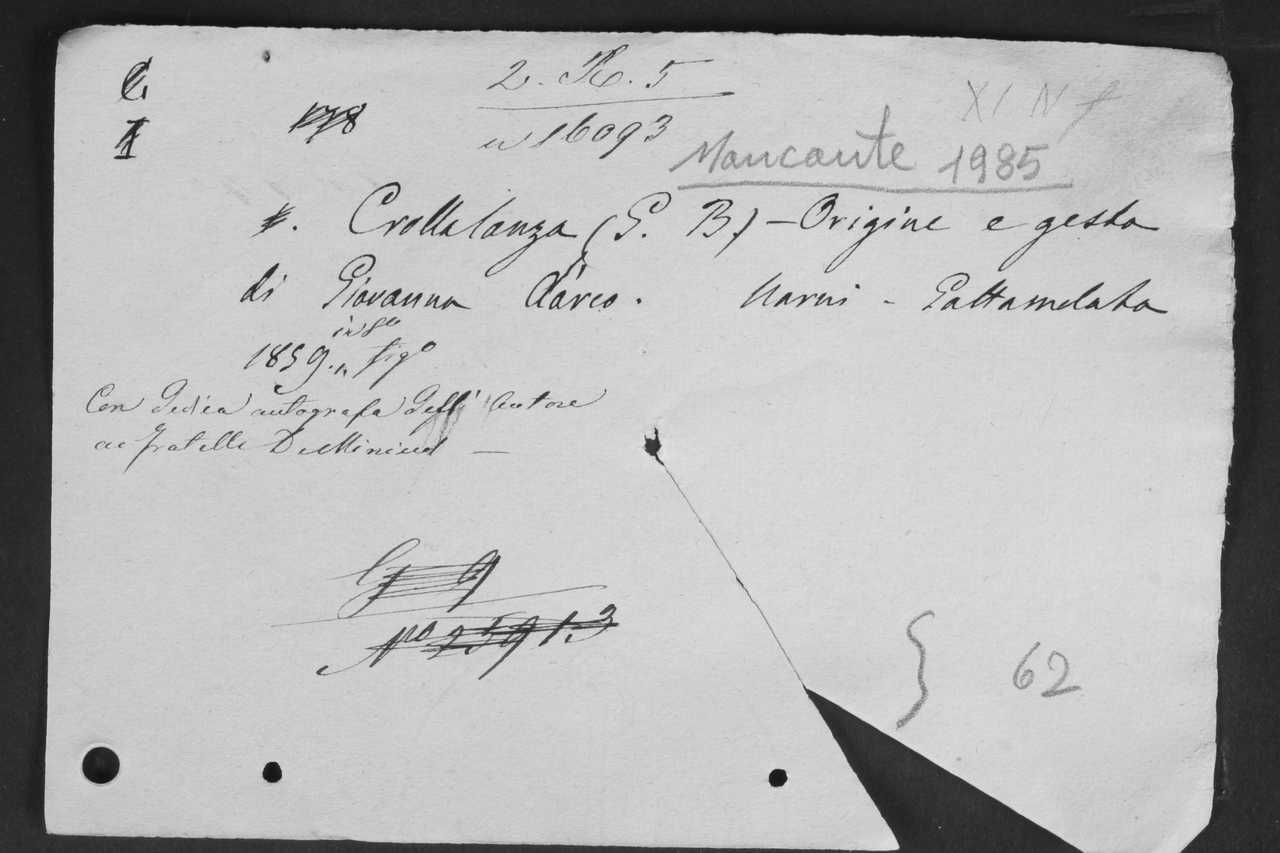 2. R. 5
178
n 16093
XI N f
Mancante 1985
Crollalanza (G. B.) - Origine e gesta
di Giovanna d'Arco. Narni - Gattamelata
1859. in 8° fig°
Con dedica autografa dell' Autore
ai fratelli De Minicis —
G 9
N° 25913
62